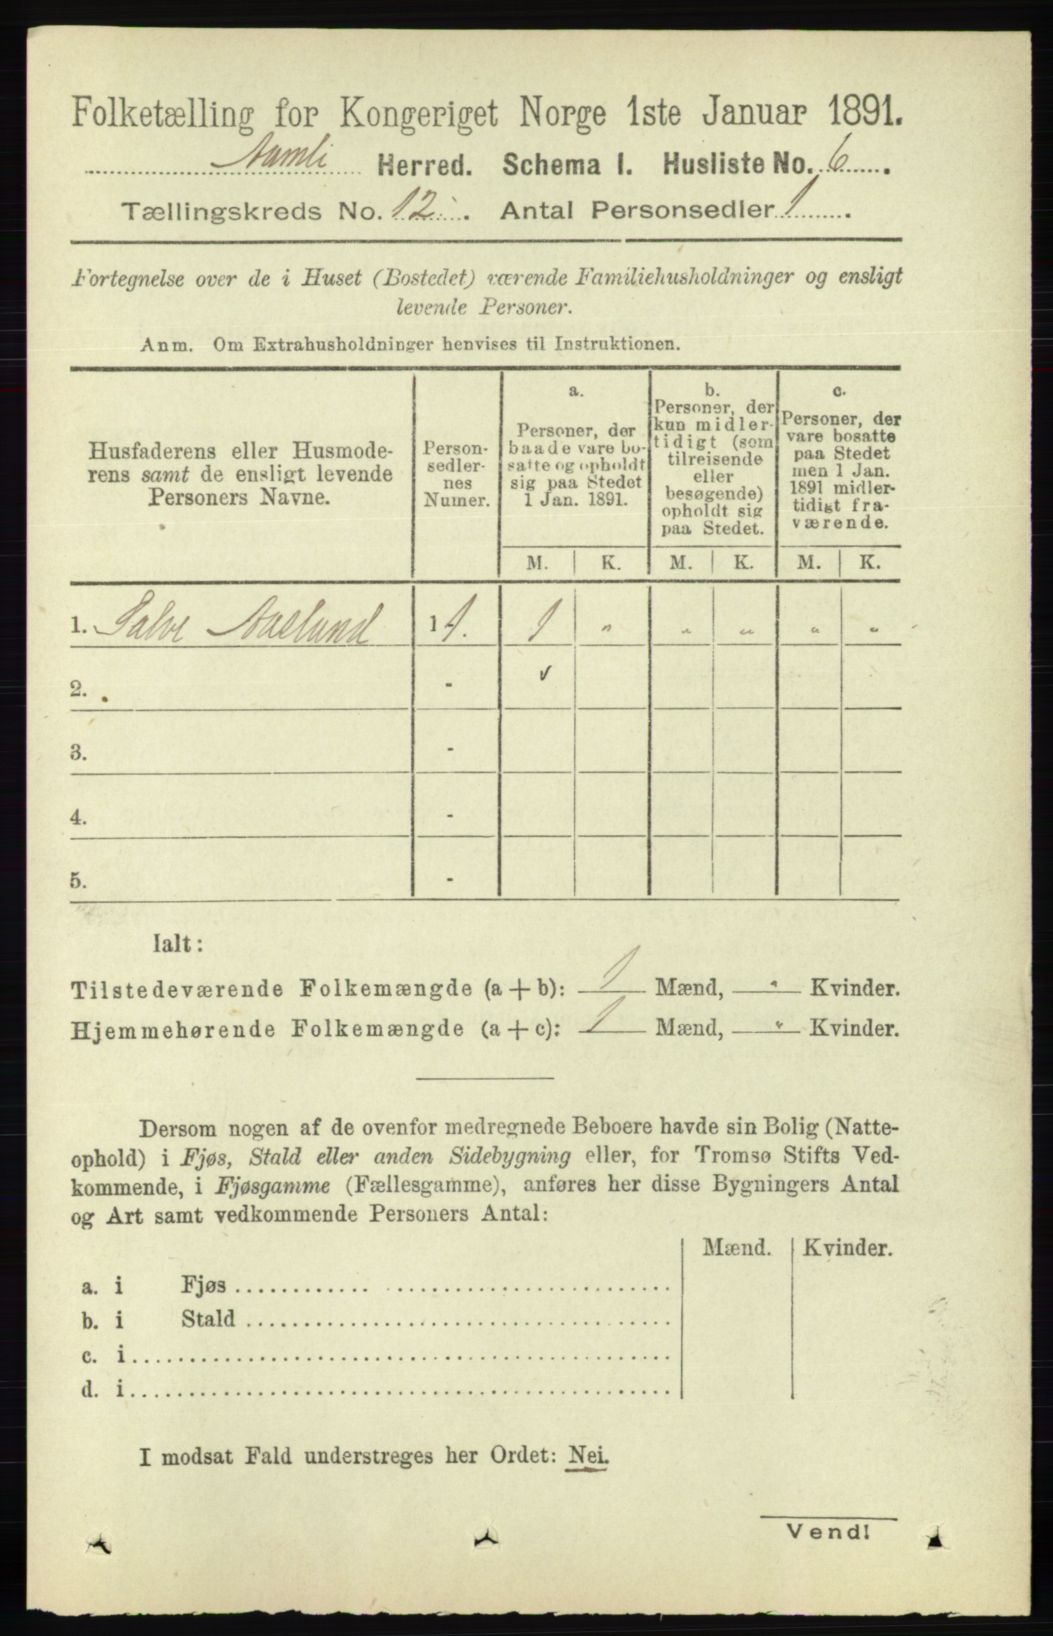 Folketælling for Kongeriget Norge 1ste Januar 1891.
Aamli Herred. Schema I. Husliste No. 6.
Tællingskreds No. 12. Antal Personsedler 1.
Fortegnelse over de i Huset (Bostedet) værende Familiehusholdninger og ensligt
levende Personer.
Anm. Om Extrahusholdninger henvises til Instruktionen.
Husfaderens eller Husmode-
rens samt de ensligt levende
Personers Navne.
Person-
sedler-
nes
Numer.
a.
Personer, der
baade vare bo-
satte og opholdt
sig paa Stedet
1 Jan. 1891.
b.
Personer, der
kun midler-
tidigt (som
tilreisende
eller
besøgende)
opholdt sig
paa Stedet.
c.
Personer, der
vare bosatte
paa Stedet
men 1 Jan.
1891 midler-
tidigt fra-
værende.
M. K. M. K. M. K.
1. Salve Aaslund 1 1. 1 " " " " "
2. -
3. -
4. -
5. -
Ialt:
Tilstedeværende Folkemængde (a + b): 1 Mænd, " Kvinder.
Hjemmehørende Folkemængde (a + c): 1 Mænd, " Kvinder.
Dersom nogen af de ovenfor medregnede Beboere havde sin Bolig (Natte-
ophold) i Fjøs, Stald eller anden Sidebygning eller, for Tromsø Stifts Ved-
kommende, i Fjøsgamme (Fællesgamme), anføres her disse Bygningers Antal
og Art samt vedkommende Personers Antal:
Mænd. Kvinder.
a. i Fjøs
b. i Stald
c. i
d. i
I modsat Fald understreges her Ordet: Nei.
Vend!